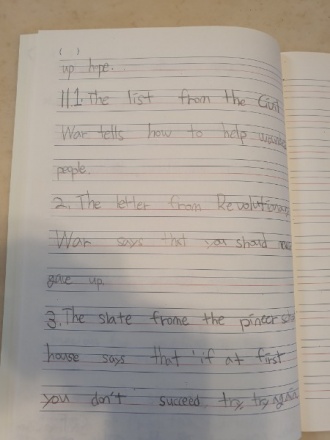 up hope.
11. The list from the Civil
War tells how to help wounded
people.
2. The letter from Revolutionary
War says that you should not
give up.
3. The slate frome the pineer school
house says that "if at first
you don't succeed, try, try again